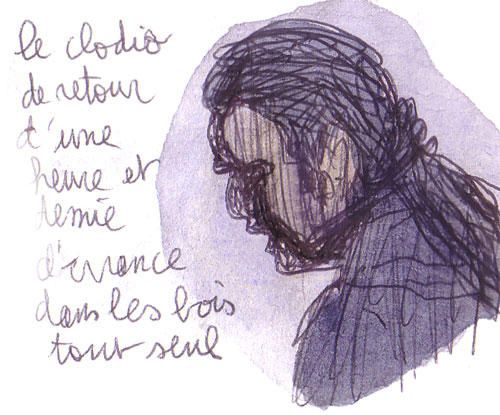 le clodiô
de retour
d'une
heure et
demie
d'errance
dans les bois
tout seul